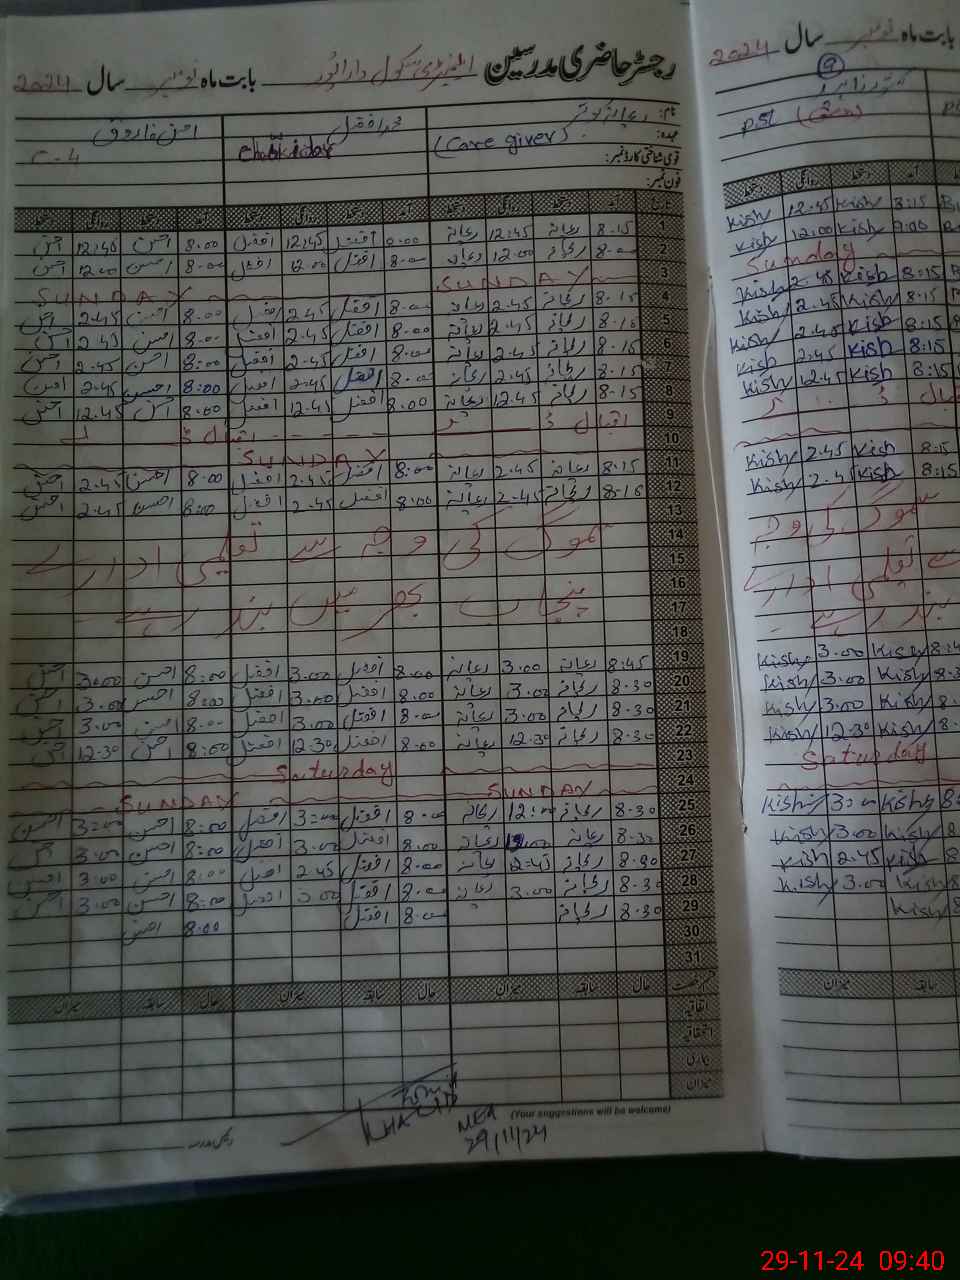 رجسٹر حاضری مدرسین ایلیمنٹری سکول داراپور بابت ماہ نومبر سال 2024
نام: ریحانہ کوثر محمد افضل احسن فاروق
عہدہ: (Care giver) Chowkidar C-4
قومی شناختی کارڈ نمبر:
فون نمبر:
تاریخ آمد دستخط روانگی دستخط آمد دستخط روانگی دستخط آمد دستخط روانگی دستخط
1 8.15 ریحانہ 12:45 ریحانہ 8.00 افضل 12:45 افضل 8.00 احسن 12:40 احسن
2 8.00 ریحانہ 12.00 ریحانہ 8.00 افضل 12.00 افضل 8.00 احسن 12.00 احسن
3 SUNDAY SUNDAY
4 8.15 ریحانہ 2.45 ریحانہ 8.00 افضل 2.45 افضل 8.00 احسن 2.45 احسن
5 8.15 ریحانہ 2.45 ریحانہ 8.00 افضل 2.45 افضل 8.00 احسن 2.45 احسن
6 8.15 ریحانہ 2.45 ریحانہ 8.00 افضل 2.45 افضل 8:00 احسن 2.45 احسن
7 8.15 ریحانہ 2.45 ریحانہ 8.00 افضل 2.45 افضل 8:00 احسن 2.45 احسن
8 8.15 ریحانہ 12.45 ریحانہ 8.00 افضل 12.45 افضل 8.00 احسن 12.45 احسن
9 اقبال ڈے اقبال ڈے
10 SUNDAY
11 8.15 ریحانہ 2.45 ریحانہ 8:00 افضل 2.45 افضل 8.00 احسن 2.45 احسن
12 8.15 ریحانہ 2.45 ریحانہ 8:00 افضل 2.45 افضل 8:00 احسن 2.45 احسن
13
14 سموگ کی وجہ سے تعلیمی ادارے
15
16
17 پنجاب بھر میں بند رہے
18
19 8:45 ریحانہ 3.00 ریحانہ 8.00 افضل 3.00 افضل 8:00 احسن 3.00 احسن
20 8.30 ریحانہ 3.00 ریحانہ 8.00 افضل 3.00 افضل 8:00 احسن 3.00 احسن
21 8.30 ریحانہ 3.00 ریحانہ 8.00 افضل 3.00 افضل 8.00 احسن 3.00 احسن
22 8.30 ریحانہ 12.30 ریحانہ 8.00 افضل 12.30 افضل 8:00 احسن 12.30 احسن
23 Saturday
24 SUNDAY SUNDAY
25 8.30 ریحانہ ریحانہ 8.00 افضل 3:00 افضل 8:00 احسن 3:00 احسن
26 8.30 ریحانہ ریحانہ 8.00 افضل 3.00 افضل 8:00 احسن 3.00 احسن
27 8.30 ریحانہ 2:45 ریحانہ 8.00 افضل 2.45 افضل 8:00 احسن 3:00 احسن
28 8.30 ریحانہ 3.00 ریحانہ 8.00 افضل 3.00 افضل 8:00 احسن 3.00 احسن
29 8.30 ریحانہ 8.00 افضل 8.00 احسن
30
31
قسم رخصت حال سابقہ میزان حال سابقہ میزان حال سابقہ میزان
اتفاقیہ
استحقاقیہ
بیماری
میزان
KHALID
(Your suggestions will be welcome)
MEA
29/11/24
بابت ماہ نومبر سال 2024
9
PST
دستخط روانگی دستخط آمد
Kish 12.45 Kish 8:15
Kish 12:00 Kish 9:00
Sunday
Kish 2.45 Kish 8:15
Kish 2.45 Kish 8:15
Kish 2.45 Kish 8:15
Kish 2:45 Kish 8:15
Kish 12.45 Kish 8:15
اقبال ڈے
Kish 2.45 Kish 8:15
Kish 2.45 Kish 8:15
سموگ کی وجہ
سے تعلیمی ادارے
بند رہے
Kish 3.00 Kish
Kish 3:00 Kish
Kish 3:00 Kish
Kish 12.30 Kish
Saturday
Kish 3:00 Kish
Kish 3.00 Kish
Kish 2:45 Kish
Kish 3.00 Kish
Kish
میزان سابقہ
29-11-24 09:40